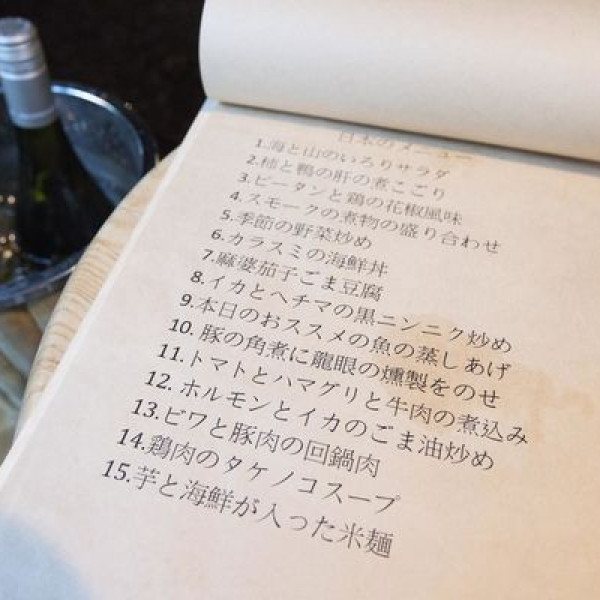 日本のメニュー
1.海と山のいろりサラダ
2.柿と鴨の肝の煮こごり
3.ピータンと鶏の花椒風味
4.スモークの煮物の盛り合わせ
5.季節の野菜炒め
6.カラスミの海鮮丼
7.麻婆茄子ごま豆腐
8.イカとヘチマの黒ニンニク炒め
9.本日のおススメの魚の蒸しあげ
10. 豚の角煮に龍眼の燻製をのせ
11.トマトとハマグリと牛肉の煮込み
12. ホルモンとイカのごま油炒め
13.ビワと豚肉の回鍋肉
14.鶏肉のタケノコスープ
15.芋と海鮮が入った米麺